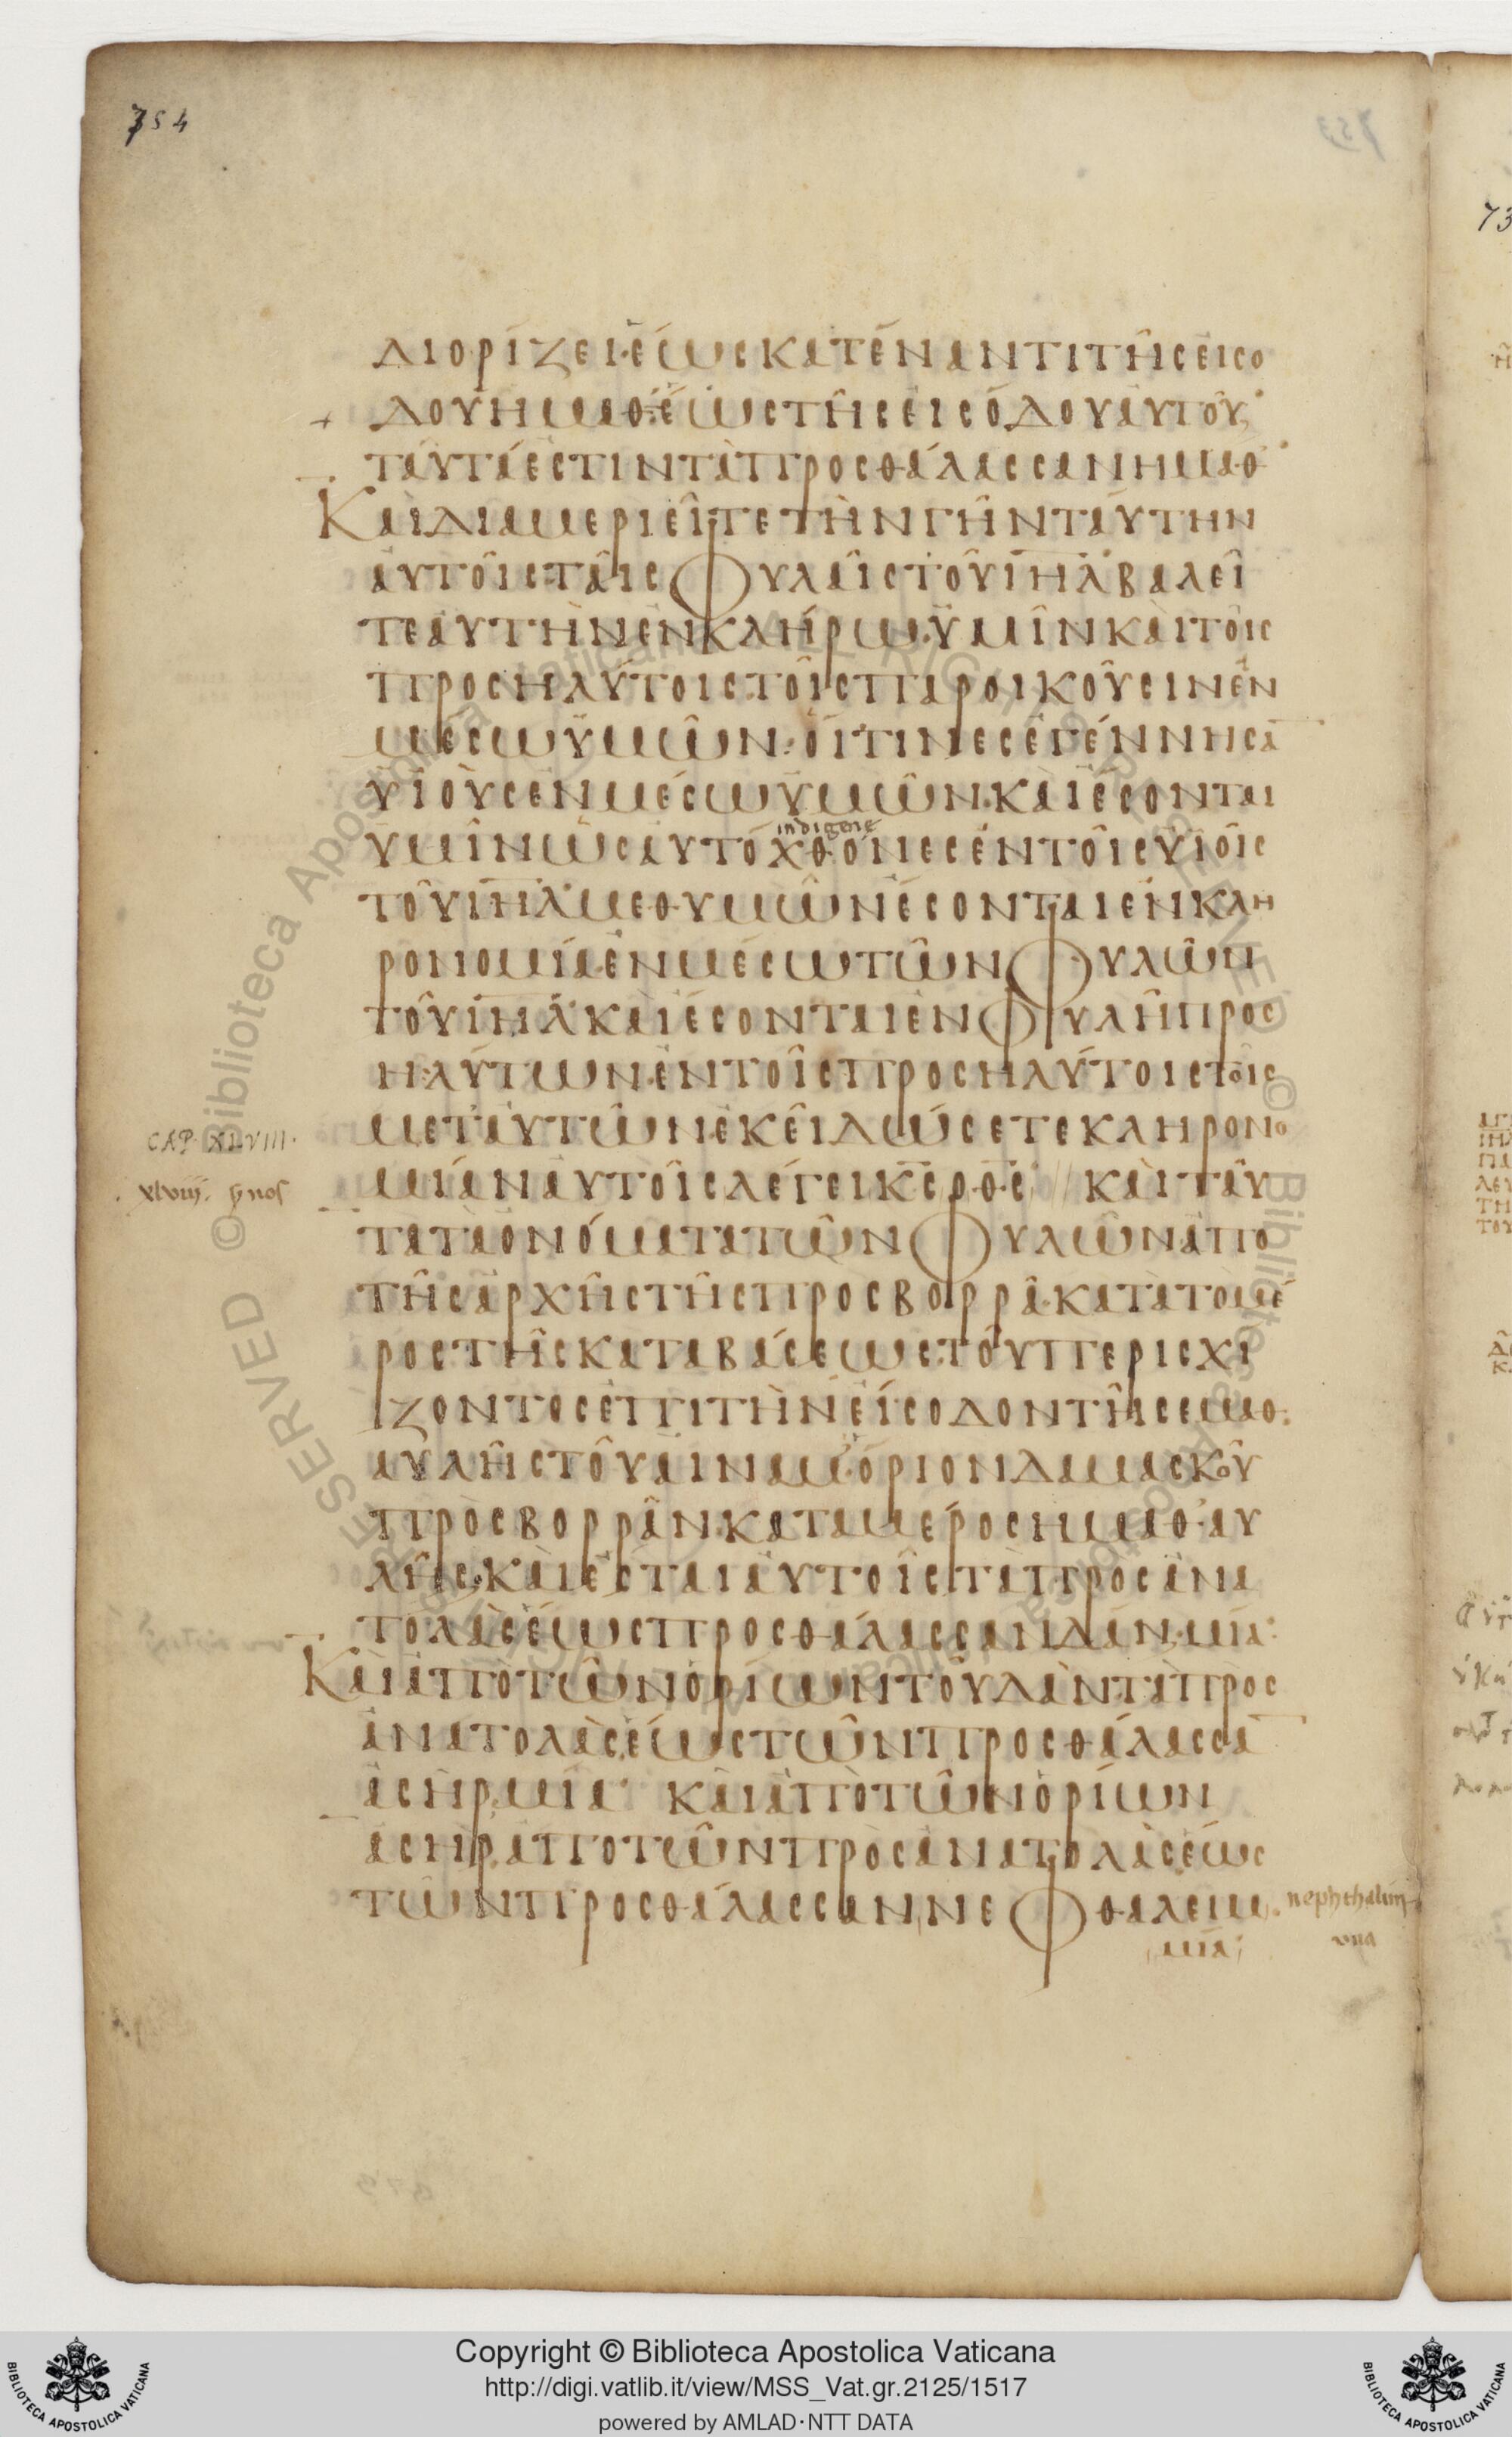 754
ΔΙΟΡΊΖΕΙ·ἝΩϹΚΑΤΈΝΑΝΤΙΤΗ͂ϹΕἸϹΟ
ΔΟΥΗΜΑΘ·ἝΩϹΤΗ͂ϹΕἸϹΌΔΟΥΑΥΤΟΥ͂·
ΤΑΥΤΆἘϹΤΙΝΤᾺΠΡΟϹΘΆΛΑϹϹΑΝΗΜΑΘ·
ΚΑῚΔΙΑΜΕΡΙΕΙ͂ΤΕΤῊΝΓΗ͂ΝΤΑΎΤΗΝ
ΑΥΤΟΙ͂ϹΤΑΙ͂ϹΦΥΛΑΙ͂ϹΤΟΥ͂ΙΗΛ̅·ΒΑΛΕΙ͂
ΤΕΑΥΤῊΝἘΝΚΛΉΡΩ·ΥΜΙ͂ΝΚΑῚΤΟΙ͂Ϲ
ΠΡΟϹΗΛΎΤΟΙϹΤΟΙ͂ϹΠΑΡΟΙΚΟΥ͂ϹΙΝἘΝ
ΜΈϹΩΥΜΩ͂Ν·ΟἽΤΙΝΕϹἘΓΈΝΝΗϹΑ̅
ΥἹΟῪϹἘΝΜΈϹΩΥΜΩ͂Ν·ΚΑῚἜϹΟΝΤΑΙ
ΥΜΙ͂ΝὩϹΑΥΤΌΧΘΟΝΕϹἘΝΤΟΙ͂ϹΥἹΟΙ͂Ϲ
indigene
ΤΟΥ͂ΙΗΛ̅·ΜΕΘΥΜΩ͂ΝἜϹΟΝΤΑΙἘΝΚΛΗ
ΡΟΝΟΜΊΑ·ἘΝΜΈϹΩΤΩ͂ΝΦΥΛΩ͂Ν
ΤΟΥ͂ΙΗΛ̅·ΚΑῚἜϹΟΝΤΑΙἘΝΦΥΛΗ͂ΠΡΟϹ
ΗΛΎΤΩΝ·ἘΝΤΟΙ͂ϹΠΡΟϹΗΛΎΤΟΙϹΤΟΙ͂Ϲ
ΜΕΤΑΥΤΩ͂Ν·ἘΚΕΙ͂ΔΏϹΕΤΕΚΛΗΡΟΝΟ
CAP· XLVIII·
ΜΊΑΝΑΥΤΟΙ͂ϹΛΈΓΕΙΚ̅Ϲ̅Ο̅Θ̅Ϲ̅· ΚΑῚΤΑΥ͂
xlviij.
ΤΑΤᾺΟΝΌΜΑΤΑΤΩ͂ΝΦΥΛΩ͂ΝἈΠΟ
ΤΗ͂ϹἈΡΧΗ͂ϹΤΗ͂ϹΠΡΟϹΒΟΡΡΑ͂·ΚΑΤΑΤΟΜΈ
ΡΟϹΤΗ͂ϹΚΑΤΑΒΆϹΕΩϹΤΟΥ͂ΠΕΡΙϹΧΙ
ΖΟΝΤΟϹἘΠΙΤῊΝΕἼϹΟΔΟΝΤΗ͂ϹΕΜΑΘ·
ΑΥΛΗ͂ϹΤΟΥ͂ΑΙΝΑΜ·ὍΡΙΟΝΔΑΜΑϹΚΟΥ͂
ΠΡῸϹΒΟΡΡΑ͂Ν·ΚΑΤΑΜΈΡΟϹΗΜΑΘ·ΑΥ
ΛΗ͂Ϲ·ΚΑῚἜϹΤΑΙΑΥΤΟΙ͂ϹΤᾺΠΡΟϹἈΝΑ
ΤΟΛᾺϹἝΩϹΠΡΟϹΘΆΛΑϹϹΑΝΔᾺΝ·ΜΊΑ·
ΚΑῚἈΠῸΤΩ͂ΝὉΡΊΩΝΤΟΥ͂ΔᾺΝ·ΤᾺΠΡΟϹ
ἈΝΑΤΟΛᾺϹἝΩϹΤΩ͂ΝΠΡΟϹΘΆΛΑϹϹΑ̅
ἈϹΗΡ·ΜΊΑ· ΚΑῚἈΠῸΤΩ͂ΝὉΡΊΩΝ
ἈϹΗΡ·ἈΠΟΤΩ͂ΝΠΡῸϹἈΝΑΤΟΛᾺϹἝΩϹ
ΤΩ͂ΝΠΡΟϹΘΆΛΑϹϹΑΝ,ΝΕΦΘΑΛΕΙΜ· nephthalim
ΜΊΑ· una
Copyright © Biblioteca Apostolica Vaticana
http://digi.vatlib.it/view/MSS_Vat.gr.2125/1517
powered by AMLAD·NTT DATA